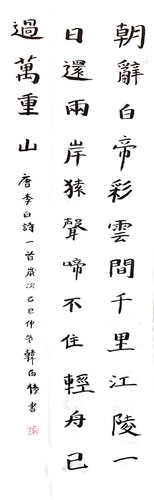 朝辭白帝彩雲間千里江陵一
日還兩岸猿聲啼不住輕舟已
過萬重山
唐李白詩一首歲次乙巳仲冬韓
書